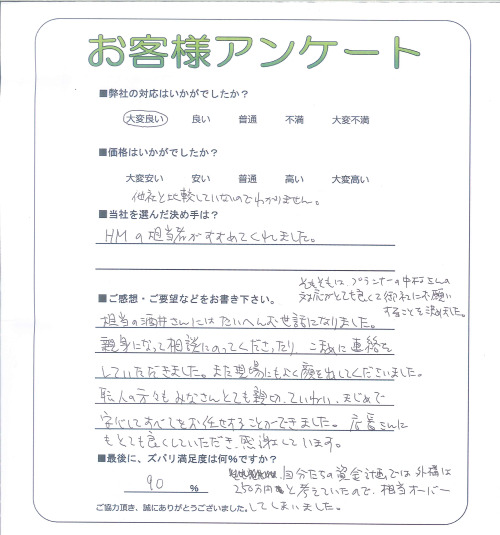 お客様アンケート
■弊社の対応はいかがでしたか？
大変良い 良い 普通 不満 大変不満
■価格はいかがでしたか？
大変安い 安い 普通 高い 大変高い
他社と比較していないのでわかりません。
■当社を選んだ決め手は？
HMの担当者がすすめてくれました。
そもそもは、プランナーの中村さんの
対応がとても良くて御社にお願い
することを決めました。
■ご感想・ご要望などをお書き下さい。
担当の酒井さんにはたいへんお世話になりました。
親身になって相談にのってくださったり、こまめに連絡を
していただきました。また現場にもよく顔を出してくださいました。
職人の方々もみなさんとても親切、ていねい、まじめで
安心してすべてをお任せすることができました。店長さんに
もとても良くしていただき、感謝しています。
■最後に、ズバリ満足度は何%ですか？
90 %
自分たちの資金計画では外構は
250万円と考えていたので、相当オーバー
してしまいました。
ご協力頂き、誠にありがとうございました。